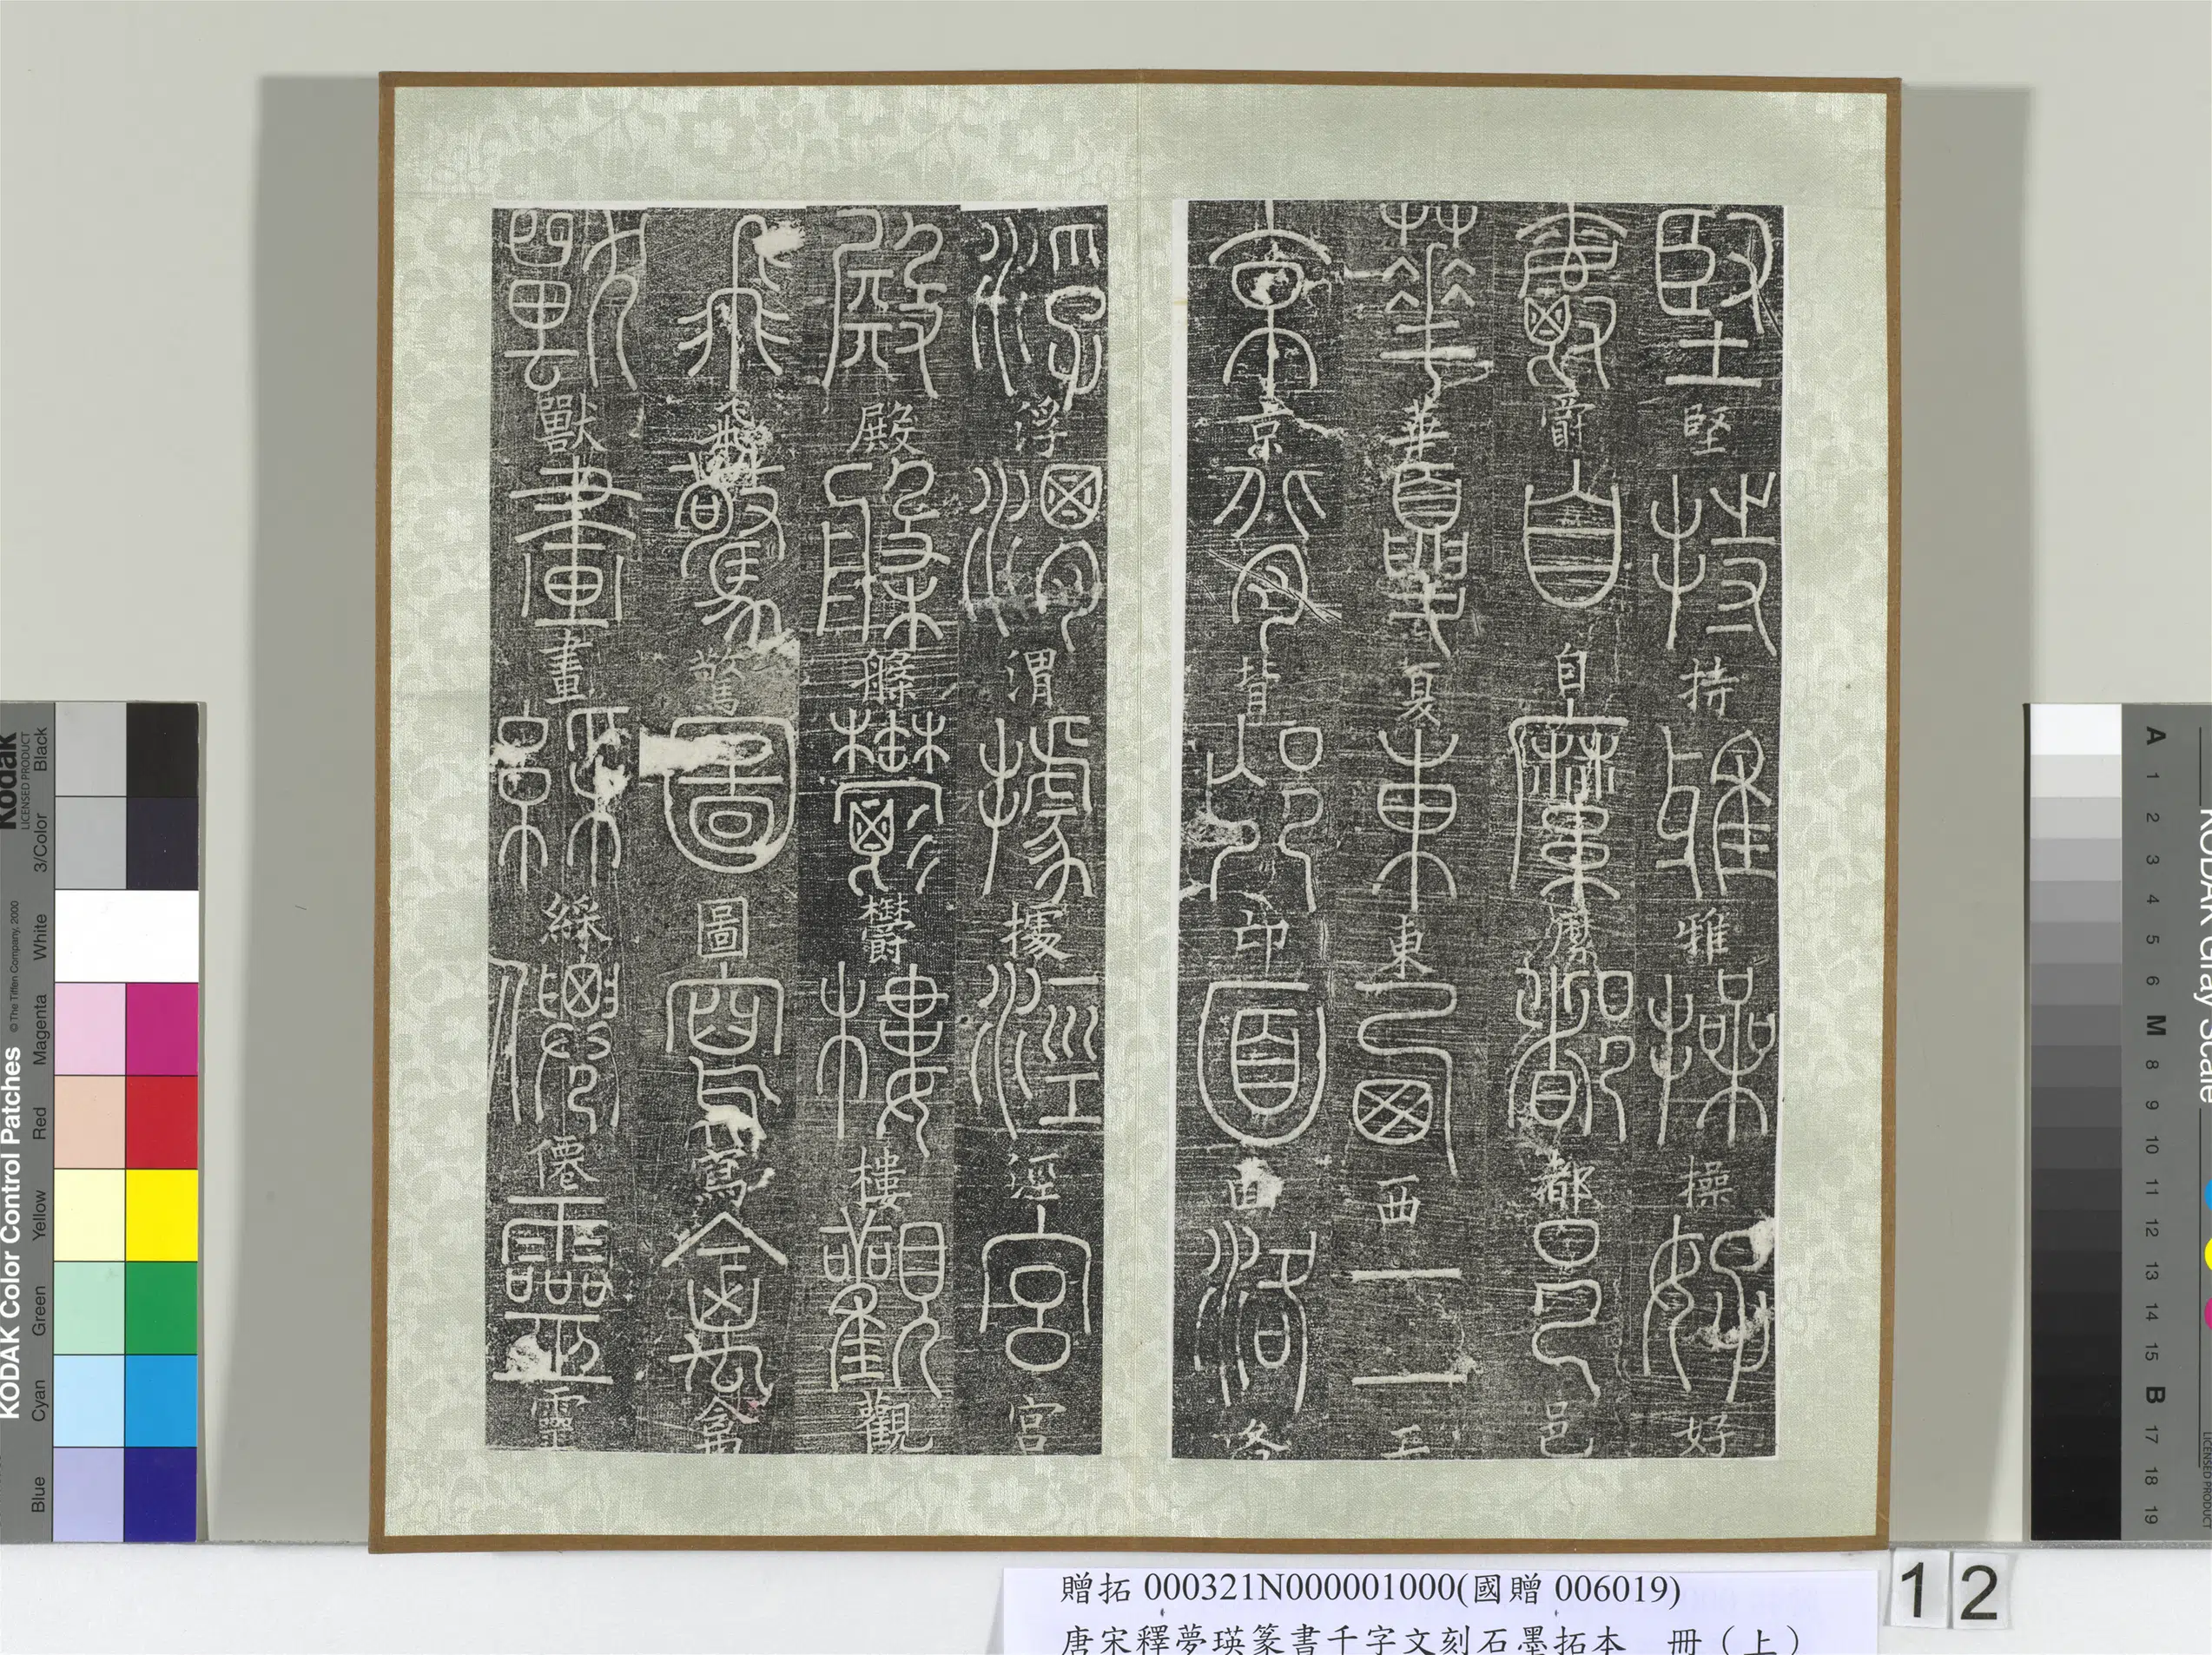 堅持雅操好
爵自縻都邑
華夏東西二
京背邙面洛
浮渭據涇宮
殿盤欝樓觀
飛驚圖寫禽
獸畫綵僊靈
贈拓 000321N000001000(國贈 006019)
唐宋釋夢瑛篆書千字文刻石墨拓本 冊（上）
12
KODAK Color Control Patches
Kodak
LICENSED PRODUCT
© The Tiffen Company, 2000
Blue Cyan Green Yellow Red Magenta White 3/Color Black
KODAK Gray Scale
A 1 2 3 4 5 6 M 8 9 10 11 12 13 14 15 B 17 18 19
LICENSED PRODUCT